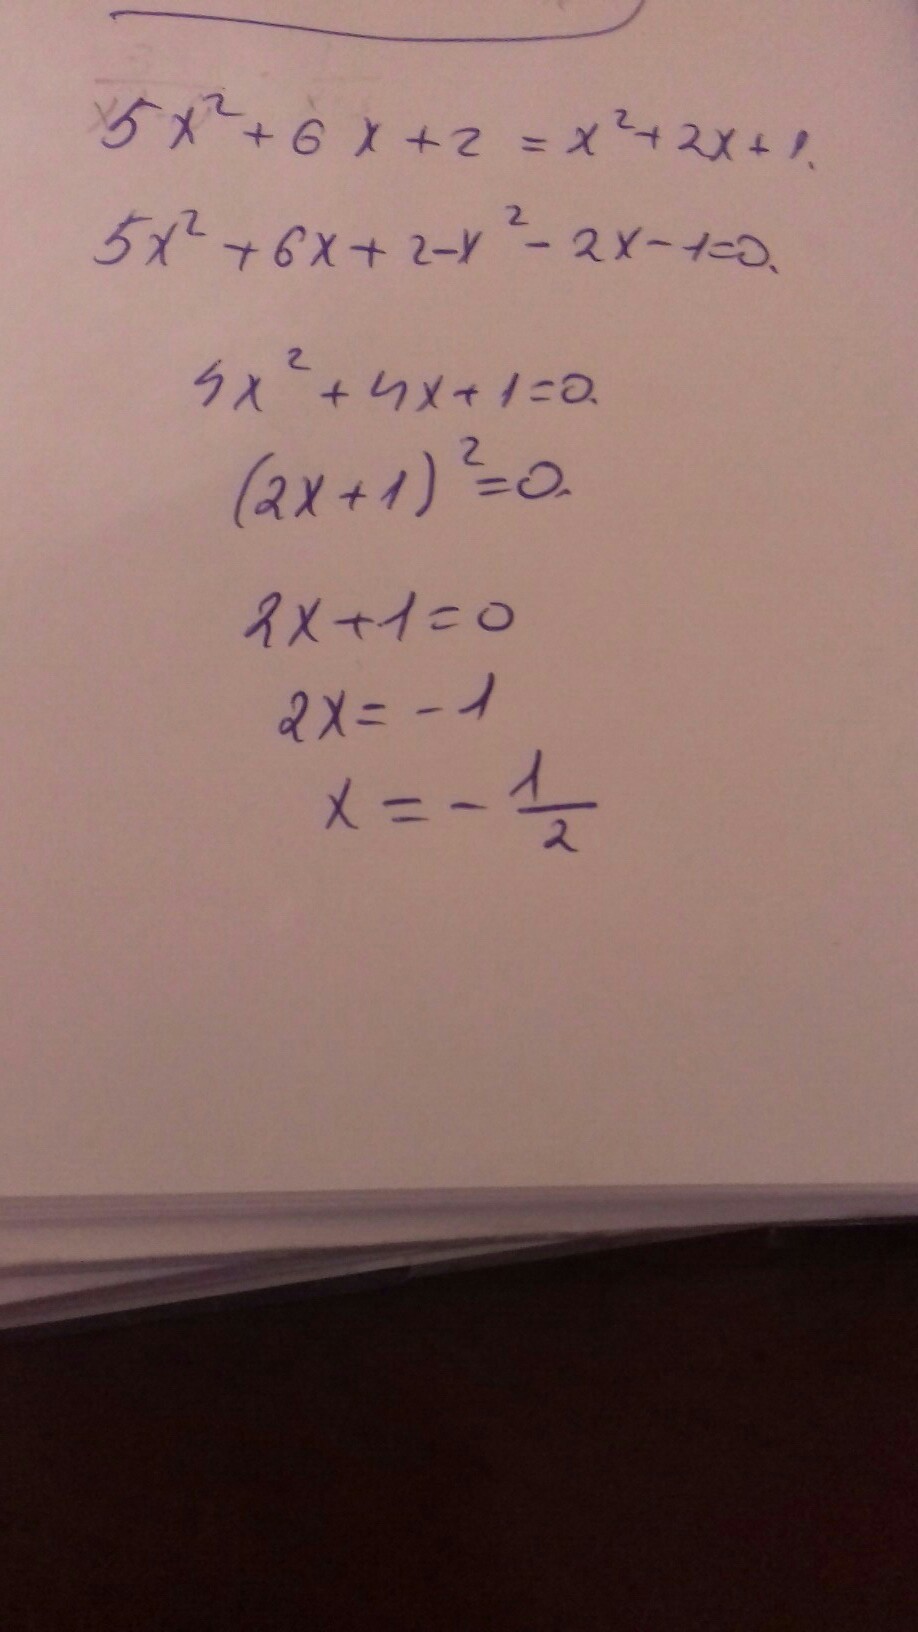 5x² + 6x + 2 = x² + 2x + 1.
5x² + 6x + 2 - x² - 2x - 1 = 0.
4x² + 4x + 1 = 0.
(2x + 1)² = 0.
2x + 1 = 0
2x = - 1
x = - 1/2